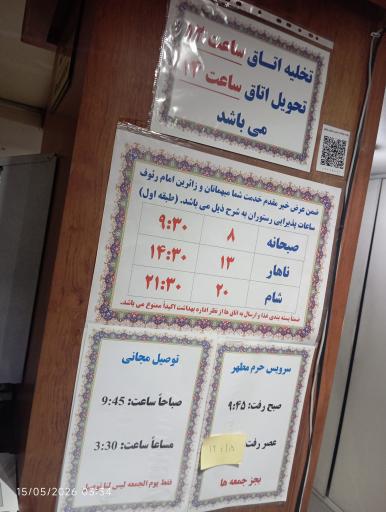 تخلیه اتاق ساعت ۱۲
تحویل اتاق ساعت ۱۴
می باشد
ضمن عرض خیر مقدم خدمت شما میهمانان و زائرین امام رئوف
ساعات پذیرایی رستوران به شرح ذیل می باشد. (طبقه اول)
صبحانه ۸ ۹:۳۰
ناهار ۱۳ ۱۴:۳۰
شام ۲۰ ۲۱:۳۰
ضمنا بسته بندی غذا و ارسال به اتاق ها از نظر اداره بهداشت اکیداً ممنوع می باشد.
سرویس حرم مطهر
صبح رفت: ۹:۴۵
عصر رفت
بجز جمعه ها
توصیل مجانی
صباحاً ساعت: 9:45
مساءاً ساعت: 3:30
فقط یوم الجمعه لیس لنا توصیل
15/05/2026 03:34